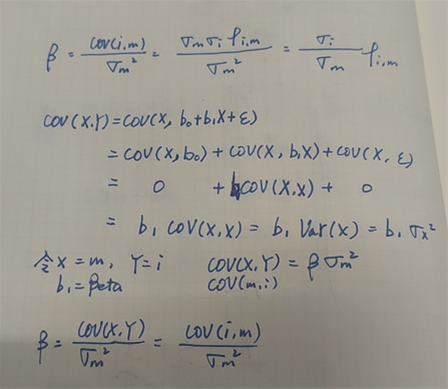 β = cov(i,m)/σm² = σmσiρi,m/σm² = σi/σm ρi,m
cov(X,Y)=cov(X, b₀+b₁X+ε)
= cov(X,b₀) + cov(X,b₁X)+cov(X, ε)
= 0 + b₁cov(X,X) + 0
= b₁ cov(X,X) = b₁ Var(X) = b₁ σx²
令X=m, Y=i cov(X,Y) = βσm²
b₁=Beta cov(m,i)
β = cov(X,Y)/σm² = cov(i,m)/σm²